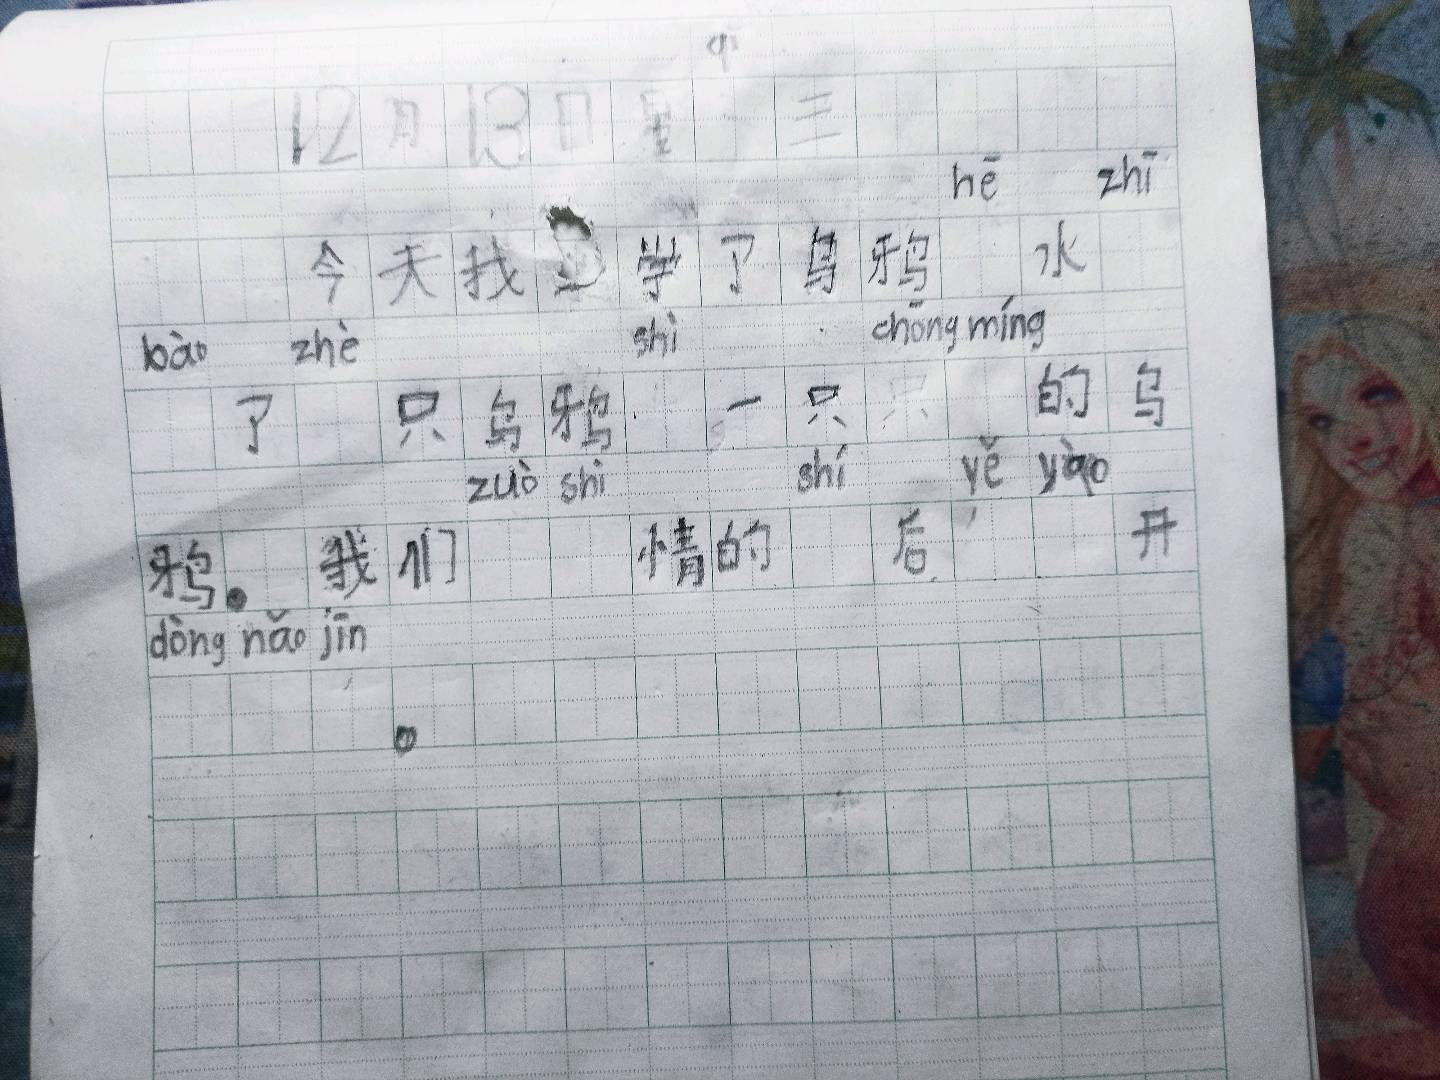 qi
12月13日星 三
hē zhī
今天我 学了乌鸦 水
bào zhè shì chōng míng
了 只乌鸦 一只只 的乌
zuò shì shí yě yào
鸦。我们 情的 后 开
dòng nǎo jīn
。